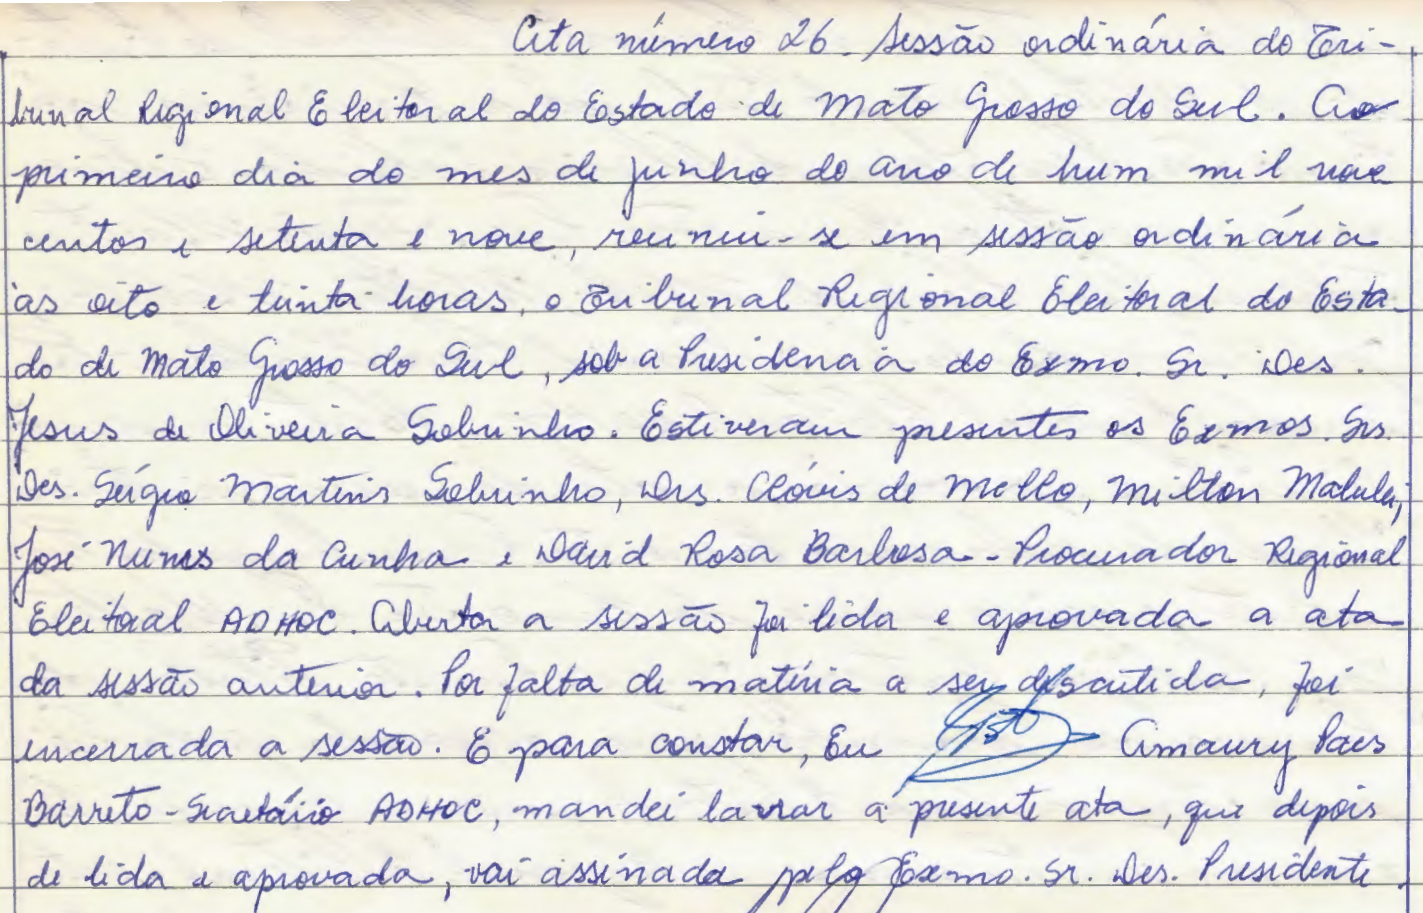 Ata número 26. Sessão ordinária do Tri-
bunal Regional Eleitoral do Estado de Mato Grosso do Sul. Ao
primeiro dia do mes de junho do ano de hum mil nove
centos e setenta e nove, reuniu-se em sessão ordinária
às oito e trinta horas, o Tribunal Regional Eleitoral do Esta-
do de Mato Grosso do Sul, sob a Presidencia do Exmo. Sr. Des.
Jesus de Oliveira Sobrinho. Estiveram presentes os Exmos. Srs.
Des. Sérgio Martins Sobrinho, Drs. Clóvis de Mello, Milton Malulei,
José Nunes da Cunha e David Rosa Barbosa - Procurador Regional
Eleitoral ADHOC. Aberta a sessão foi lida e aprovada a ata
da sessão anterior. Por falta de matéria a ser discutida, foi
encerrada a sessão. E para constar, Eu Amaury Paes
Barreto - Secretário ADHOC, mandei lavrar a presente ata, que depois
de lida e aprovada, vai assinada pelo Exmo. Sr. Des. Presidente.